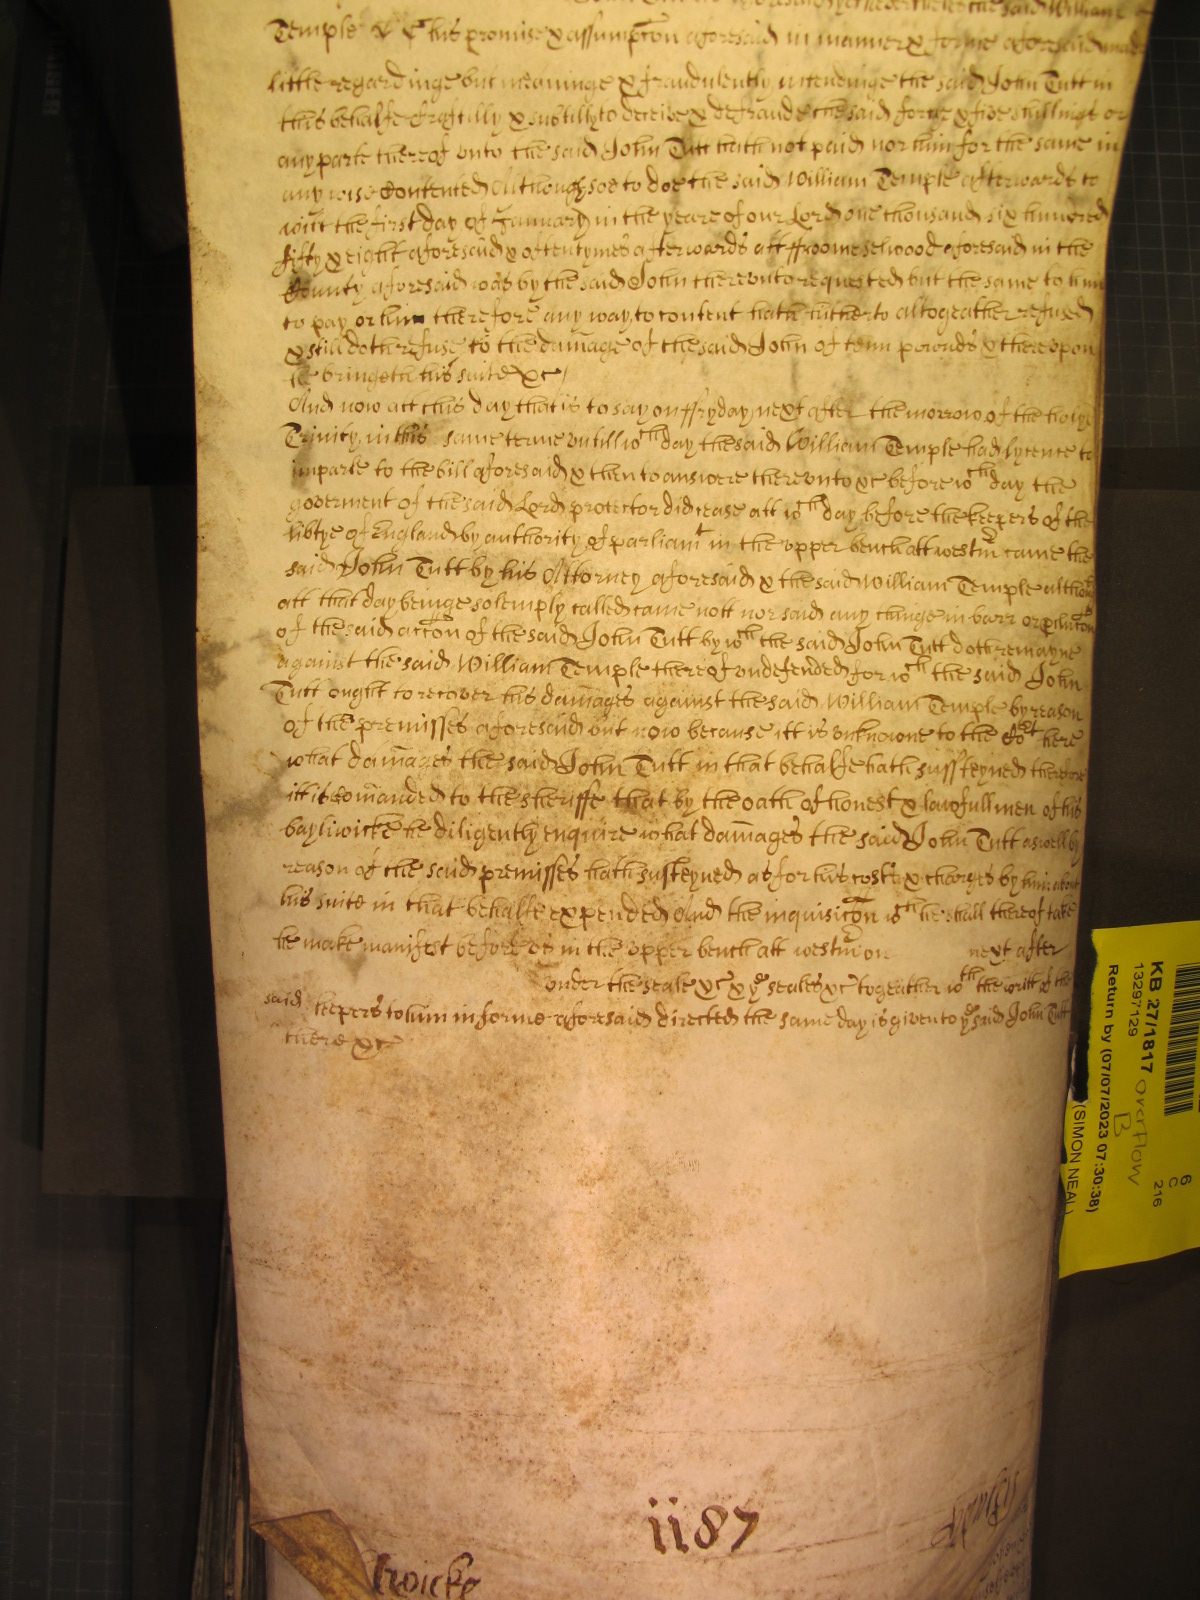 the said William
Temple his promise & assumpcon aforesaid in manner & forme aforesaid made
little regardinge but meaninge & fraudulently intendinge the said John Tutt in
this behalfe craftilly & subtilly to deceive & defraude the said fortye & five shillings or
any parte thereof unto the said John Tutt hath not paid nor him for the same in
any wise Contented Although soe to doe the said William Temple afterwards to
witt the first day of January in the yeare of our Lord one thousand six hundred
fifty & eight aforesaid & oftentymes afterwards att ffroome selwood aforesaid in the
County aforesaid was by the said John thereunto requested but the same to him
to pay or him therefore any way to content hath hitherto altogeather refused
& still doth refuse to the damage of the said John of tenn pounds & thereupon
he bringeth his suite &c
And now att this day that is to say on ffryday next after the morrow of the holye
Trinity in this same terme untill wch day the said William Temple had lycence to
imparle to the bill aforesaid & then to answere thereunto &c before wch day the
goverment of the said Lord protector did cease att wch day before the keepers of the
libtye of England by authority of parliamt in the upper bench att westmr came the
said John Tutt by his Attorney aforesaid & the said William Temple although
att that day beinge solemply called came nott nor said any thinge in barr or pclucon
of the said accon of the said John Tutt by wch the said John Tutt doth remayne
against the said William Temple thereof undefended for wch the said John
Tutt ought to recover his damages against the said William Temple by reason
of the premisses aforesaid but now because itt is unknowne to the Cort here
what damages the said John Tutt in that behalfe hath susteyned therefore
itt is Comanded to the sheriffe that by the oath of honest & lawfull men of his
bayliwicke he diligently enquire what damages the said John Tutt aswell by
reason of the said premisses hath susteyned as for his costs & charges by him about
his suite in that behalfe expended And the inquisicon wch he shall thereof take
he make manifest before us in the upper bench att westmr on next after
under the seale &c & ye seales &c togeather wth the writt of the
said keepers to him in forme aforesaid directed the same day is given to ye said John Tutt
there &c
1187
wicke
KB 27/1817
13297129
Return by (07/07/2023 07:30:38)
(SIMON NEAL)
overflow
B
6
C
216